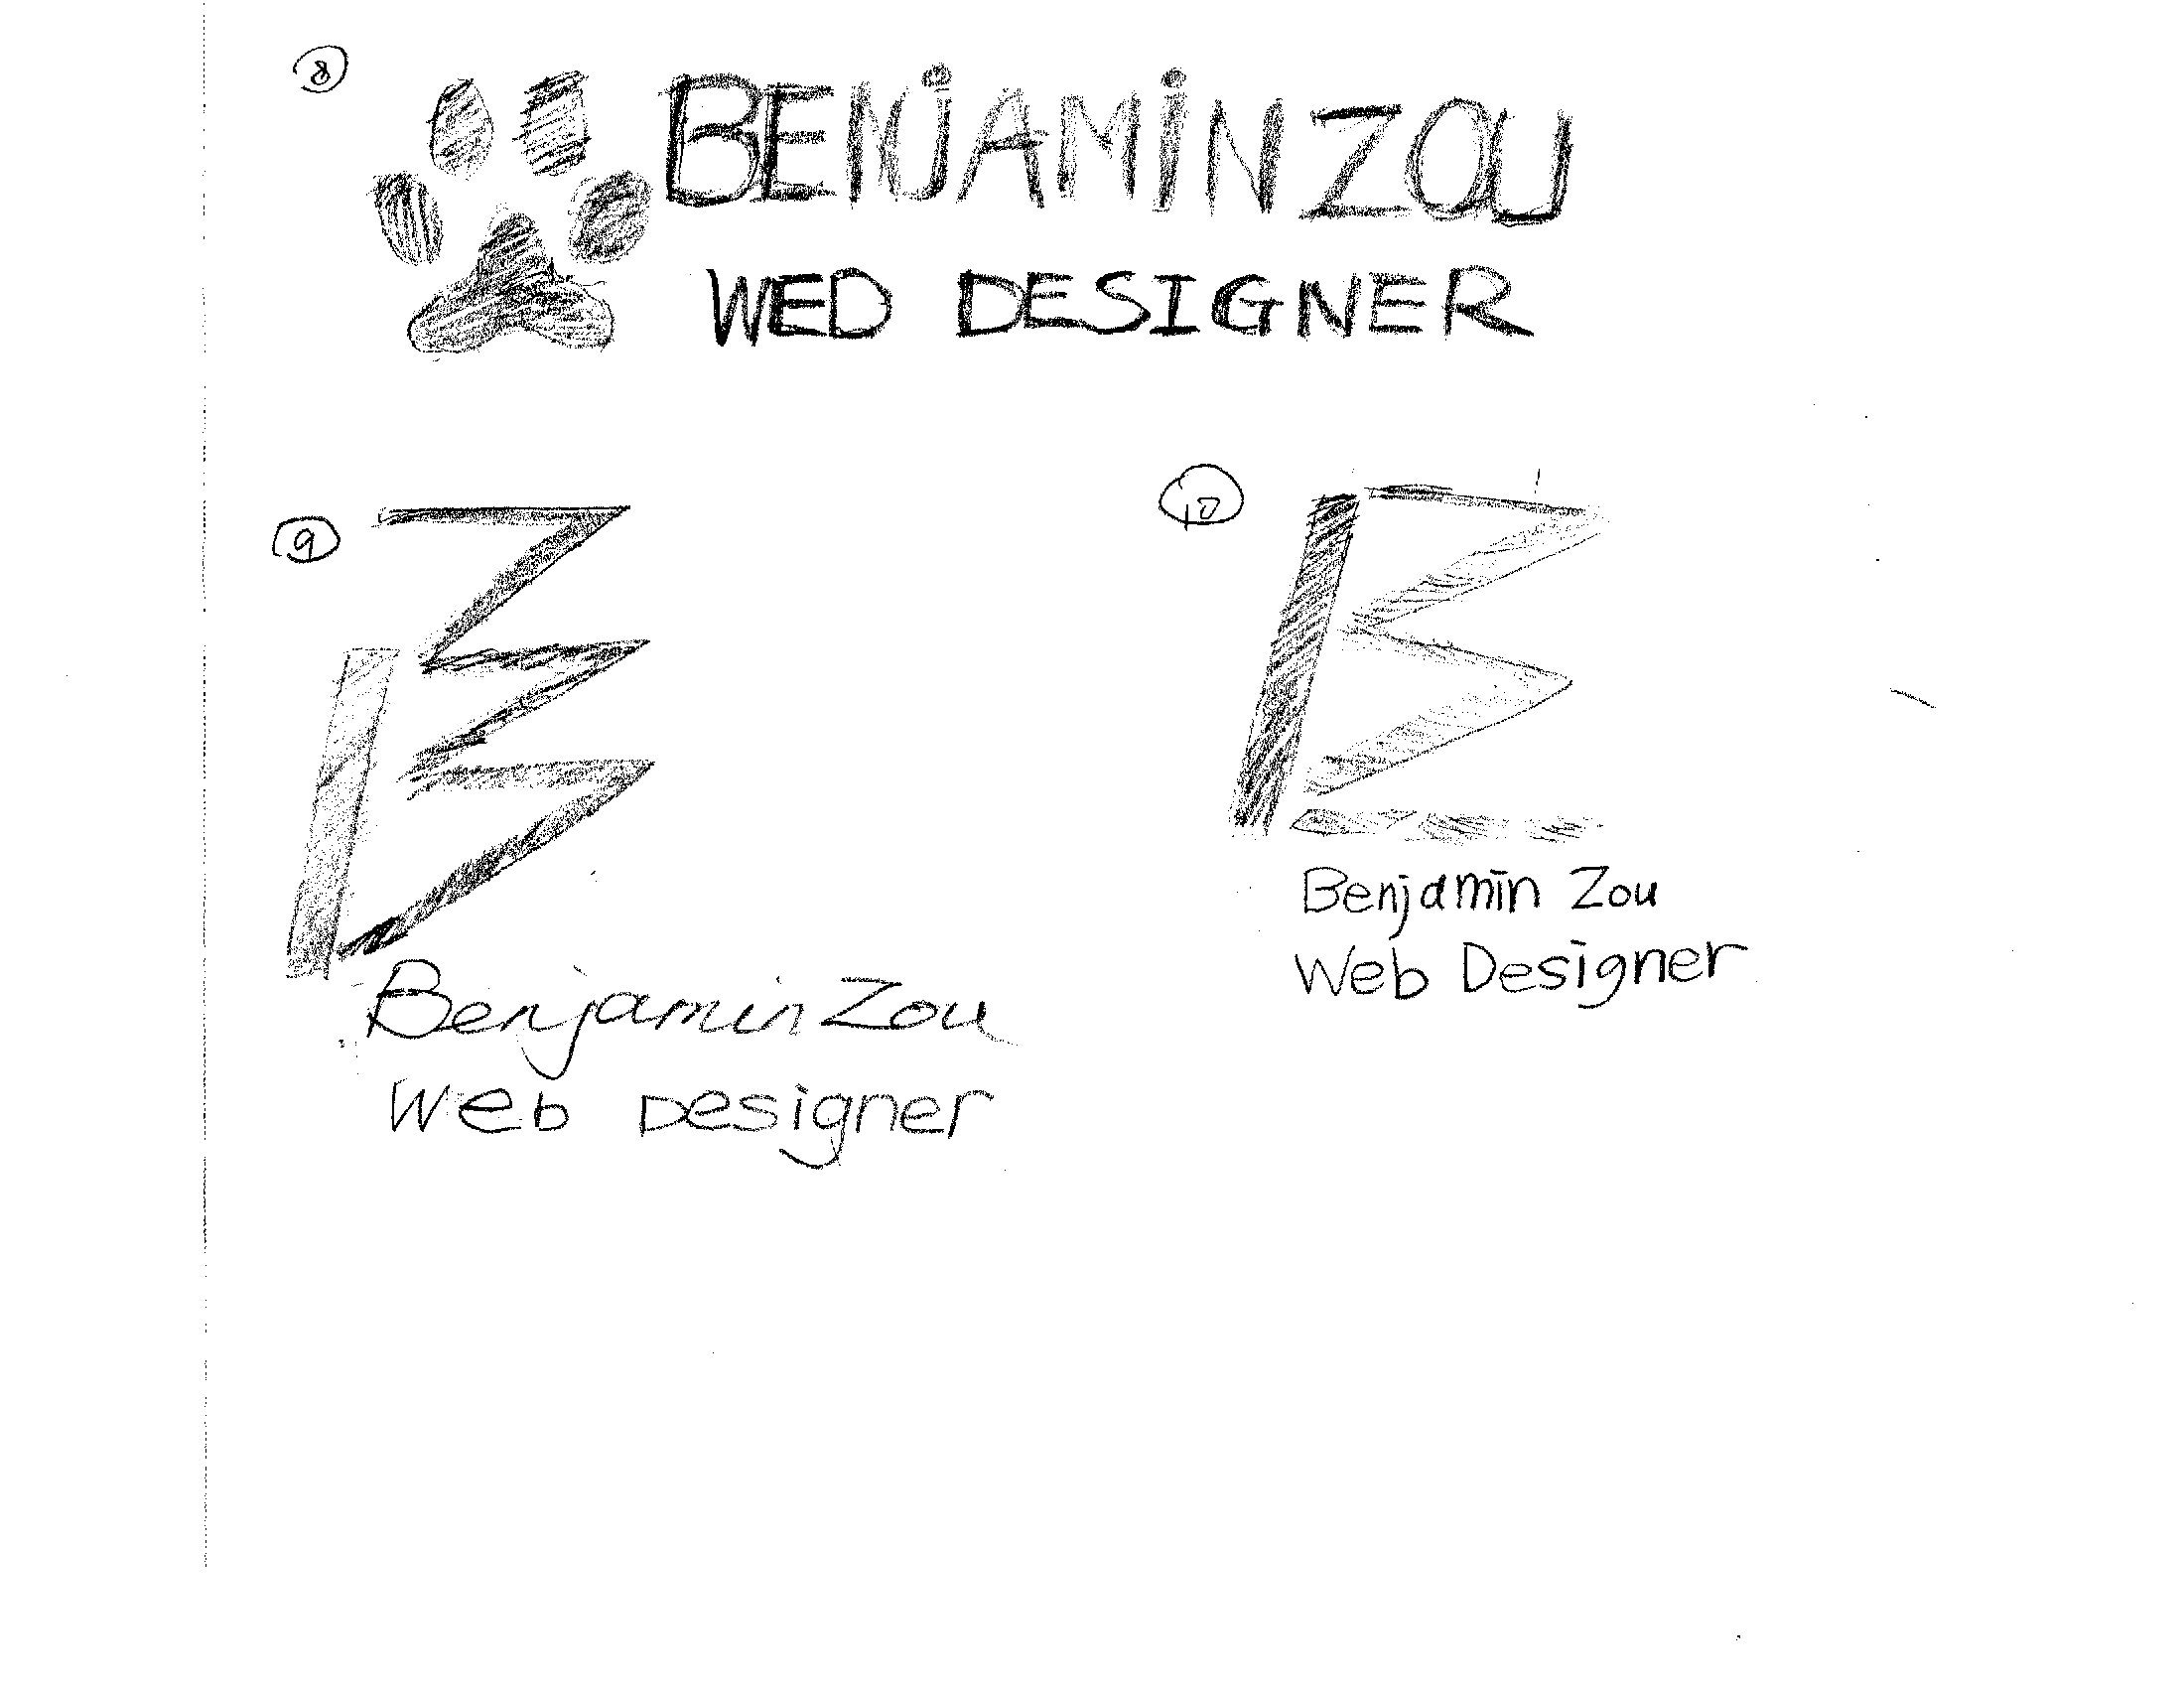 8
BENJAMiN ZOU
WED DESIGNER
9
Benjamin Zou
Web Designer
10
Benjamin Zou
Web Designer